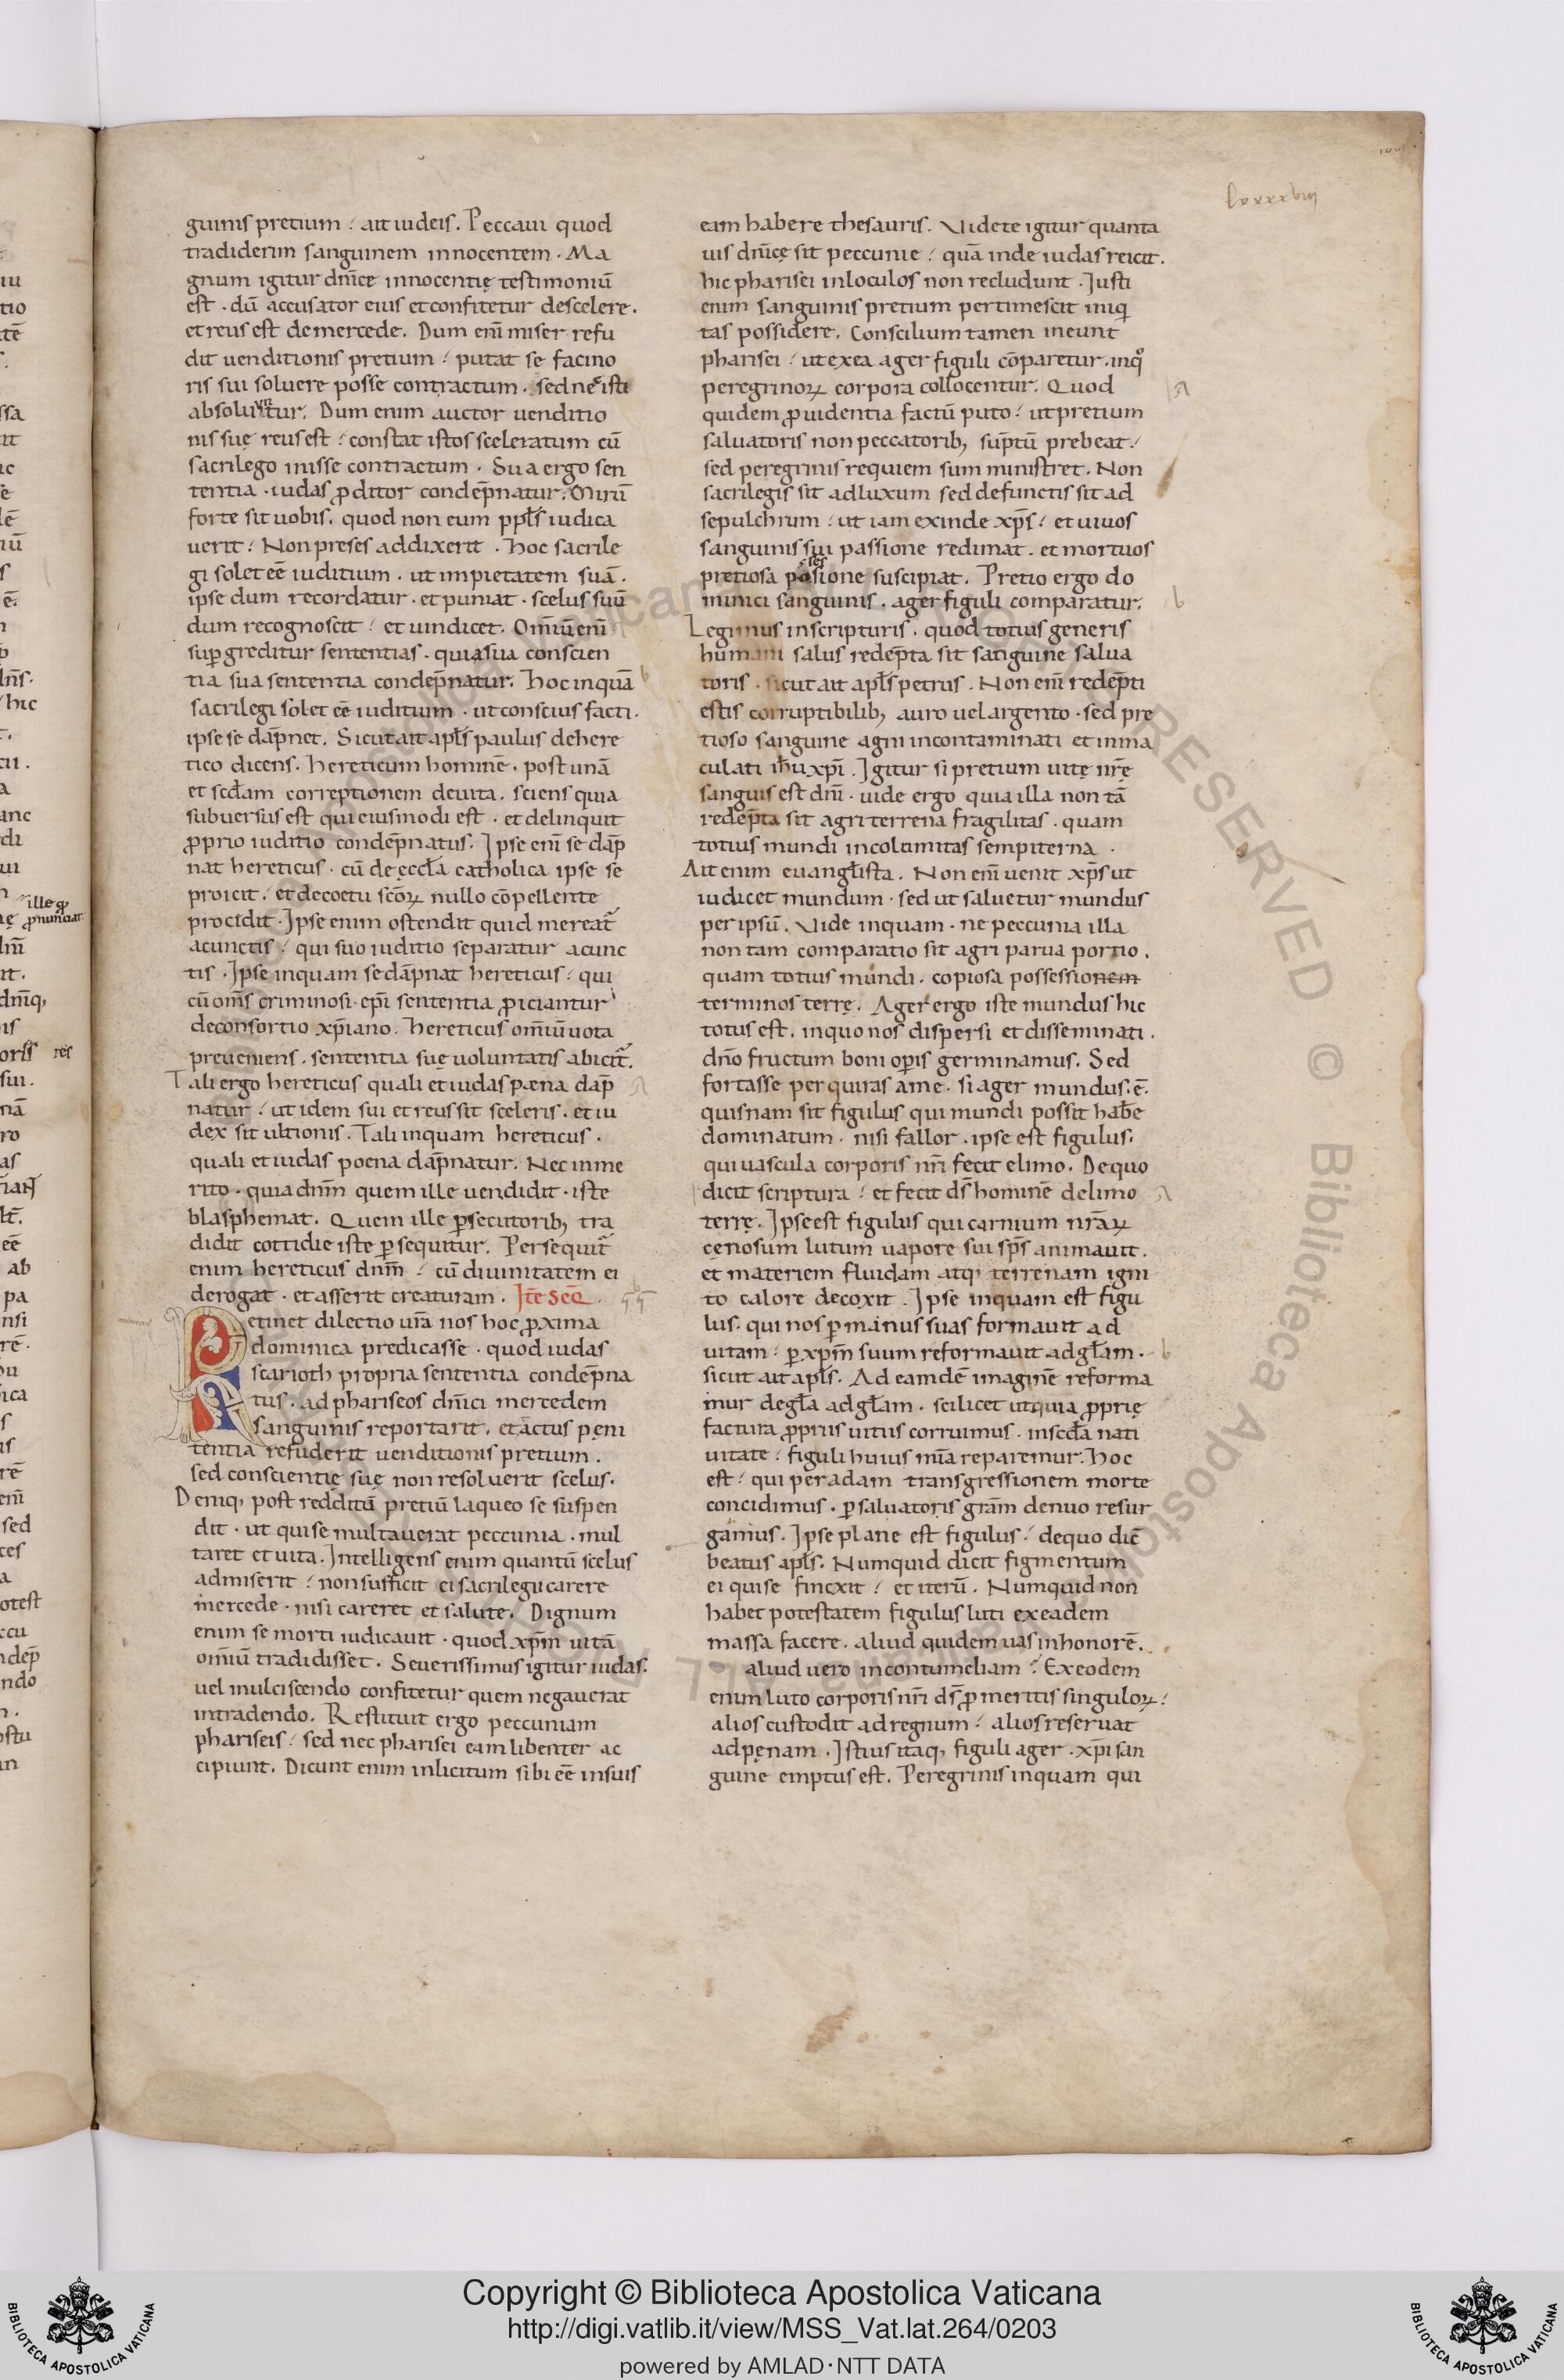 lxxxxviii
guinis pretium? ait iudeis. Peccaui quod
tradiderim sanguinem innocentem. Ma
gnum igitur dn̄icę innocentię testimoniū
est. dū accusator eius et confitetur descelere.
et reus est demercede. Dum enī miser refu
dit uenditionis pretium? putat se facino
ris sui soluere posse contractum. sed nec isti
absoluuntur. Dum enim auctor uenditio
nis suę reus est? constat istos sceleratum cū
sacrilego inisse contractum. Sua ergo sen
tentia. iudas ꝓditor condēpnatur. Mirū
forte sit uobis. quod non eum ppl̄s iudica
uerit? Non preses addixerit. hoc sacrile
gi solet eē iuditium. ut impietatem suā.
ipse dum recordatur. et puniat. scelus suū
dum recognoscit? et uindicet. Om̄iū enī
suꝑgreditur sententias. quia sua conscien
tia sua sententia condēpnatur. hoc inquā
sacrilegi solet eē iuditium. ut conscius facti.
ipse se dāpnet. Sicut ait apl̄s paulus dehere
tico dicens. hereticum hominē. post unā
et scd̄am correptionem deuita. sciens quia
subuersus est qui eiusmodi est. et delinquit
ꝓprio iuditio condēpnatus. Ipse enī se dāp
nat hereticus. cū de ęccl̄a catholica ipse se
proicit? et decoetu scōꝝ nullo cōpellente
procidit. Ipse enim ostendit quid mereat᷑
acunctis? qui suo iuditio separatur acunc
tis. Ipse inquam se dāpnat hereticus? qui
cū om̄s criminosi. ep̄i sententia ꝓiciantur
deconsortio xp̄iano. hereticus om̄iū uota
preueniens. sententia suę uoluntatis abicit᷑.
Tali ergo hereticus quali et iudas pæna dāp
natur? ut idem sui et reus sit sceleris. et iu
dex sit ultionis. Tali inquam hereticus.
quali et iudas poena dāpnatur. Nec inme
rito. quia dnm̄ quem ille uendidit. iste
blasphemat. Quem ille ꝑsecutorib; tra
didit cottidie iste ꝑsequitur. Persequit᷑
enim hereticus dnm̄? cū diuinitatem ei
derogat. et asserit creaturam. Itē Seq̄
Retinet dilectio ur̄a nos hoc ꝓxima
dominica predicasse. quod iudas
scarioth propria sententia condēpna
tus. ad phariseos dn̄ici mercedem
sanguinis reportarit. et actus pęni
tentia refuderit uenditionis pretium.
sed conscientię suę non resoluerit scelus.
Deniq; post redditū pretiū laqueo se suspen
dit. ut qui se multauerat peccunia. mul
taret et uita. Intelligens enim quantū scelus
admiserit? non sufficit ei sacrilegii carere
mercede. nisi careret et salute. Dignum
enim se morti iudicauit. quod xp̄m uitā
om̄iū tradidisset. Seuerissimus igitur iudas.
uel mulciscendo confitetur quem negauerat
intradendo. Restituit ergo peccuniam
phariseis? sed nec pharisei eam libenter ac
cipiunt. Dicunt enim inlicitum sibi eē insuis
eam habere thesauris. Videte igitur quanta
uis dn̄icę sit peccunie? quā inde iudas reicit.
hic pharisei inloculos non recludunt. Iusti
enim sanguinis pretium pertimescit iniqi
tas possidere. Conscilium tamen ineunt
pharisei? ut exea ager figuli cōparetur. inqͦ
peregrinoꝝ corpora collocentur. Quod
quidem ꝓuidentia factū puto? ut pretium
saluatoris non peccatorib; sūptū prebeat?
sed peregrinis requiem sum ministret. Non
sacrilegis sit adluxum sed defunctis sit ad
sepulchrum? ut iam exinde xp̄s? et uiuos
sanguinis sui passione redimat. et mortuos
pretiosa possessione suscipiat. Pretio ergo do
minici sanguinis. ager figuli comparatur.
Legimus inscripturis. quod totius generis
humani salus redēpta sit sanguine salua
toris. sicut ait apl̄s petrus. Non enī redēpti
estis corruptibilib; auro uel argento. sed pre
tioso sanguine agni incontaminati et inma
culati ih̄u xp̄i. Igitur si pretium uitę nr̄ę
sanguis est dn̄i. uide ergo quia illa non tā
redēpta sit agri terrena fragilitas. quam
totius mundi incolumitas sempiterna.
Ait enim euangl̄ista. Non enī uenit xp̄s ut
iudicet mundum. sed ut saluetur mundus
per ipsū. Vide inquam. ne peccunia illa
non tam comparatio sit agri parua portio.
quam totius mundi. copiosa possessionem
terminos terrę. Ager ergo iste mundus hic
totus est. inquo nos dispersi et disseminati.
dn̄o fructum boni oꝑis germinamus. Sed
fortasse perquiras ame. si ager mundus. ē.
quisnam sit figulus qui mundi possit hab̄e
dominatum. nisi fallor. ipse est figulus.
qui uascula corporis nr̄i fecit elimo. Dequo
dicit scriptura? et fecit ds̄ hominē delimo
terrę. Ipse est figulus qui carnium nr̄aꝝ
cęnosum lutum uapore sui sp̄s animauit.
et materiem fluidam atq; terrenam igni
to calore decoxit. Ipse inquam est figu
lus. qui nos ꝑ manus suas formauit ad
uitam? ꝑ xp̄m suum reformauit adgl̄am.
sicut ait apl̄s. Ad eamdē imaginē reforma
mur degl̄a adgl̄am. scilicet ut quia ꝓprię
factura ꝓprius uitiis corruimus. inscd̄a nati
uitate? figuli huius mīa reparemur. hoc
est? qui per adam transgressionem morte
concidimus. ꝑ saluatoris grām denuo resur
gamus. Ipse plane est figulus? dequo dic̄
beatus apl̄s. Numquid dicit figmentum
ei qui se fincxit? et iterū. Numquid non
habet potestatem figulus luti exeadem
massa facere. aliud quidem uas inhonorē.
aliud uero incontumeliam? Exeodem
enim luto corporis nr̄i ds̄ ꝓ meritis singuloꝝ?
alios custodit adregnum? alios reseruat
adpęnam. Istius itaq; figuli ager. xp̄i san
guine emptus est. Peregrinis inquam qui
Copyright © Biblioteca Apostolica Vaticana
http://digi.vatlib.it/view/MSS_Vat.lat.264/0203
powered by AMLAD·NTT DATA
BIBLIOTECA APOSTOLICA VATICANA
BIBLIOTECA APOSTOLICA VATICANA